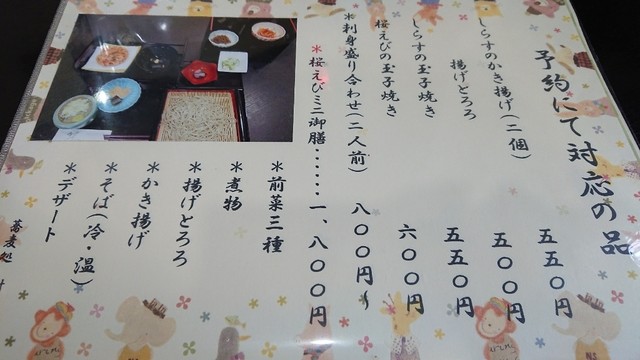 予約にて対応の品
しらすのかき揚げ(二個) 五五〇円
揚げとろろ 五〇〇円
しらすの玉子焼き 五五〇円
桜えびの玉子焼き 六〇〇円
*刺身盛り合わせ(二人前) 八〇〇円〜
*桜えびミニ御膳・・・・・・一、八〇〇円
*前菜三種
*煮物
*揚げとろろ
*かき揚げ
*そば(冷・温)
*デザート
蕎麦処